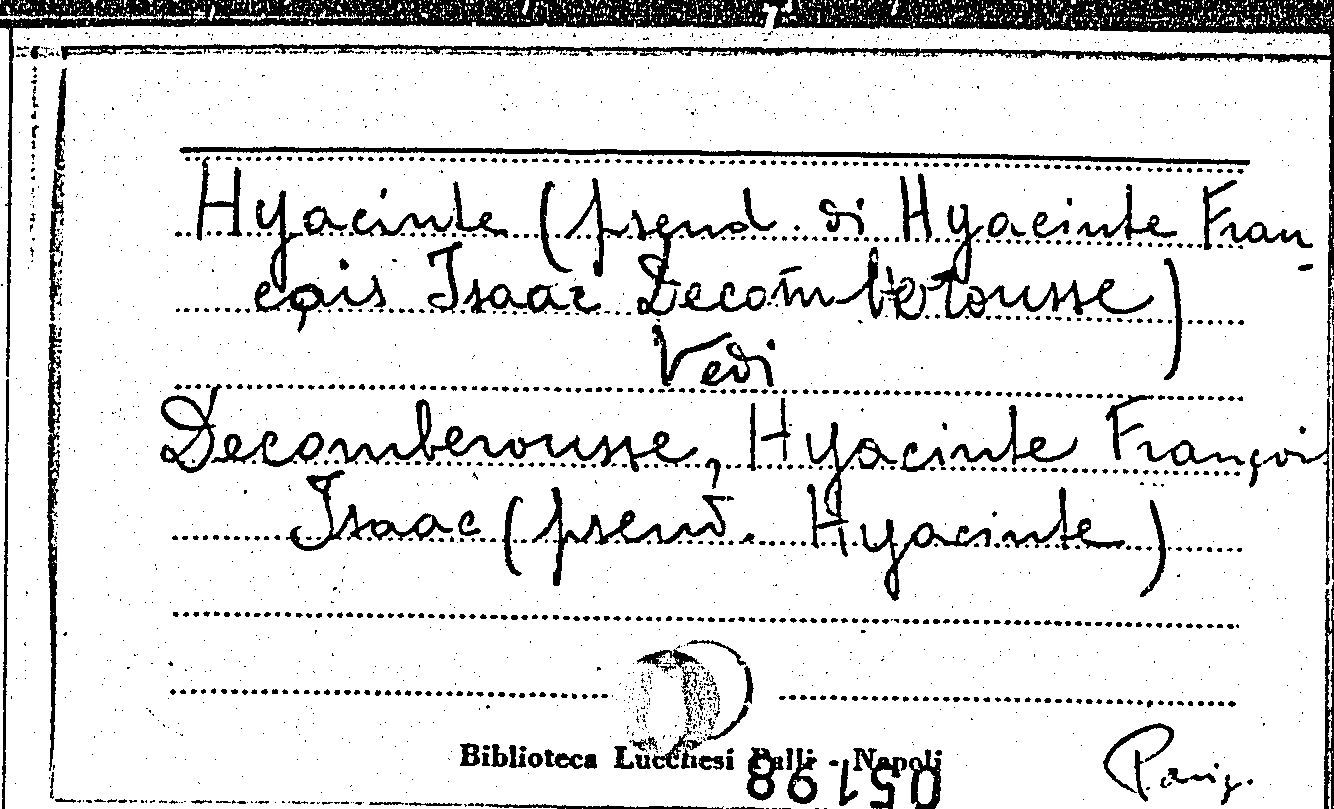 Hyacinte (pseud. di Hyacinte Fran-
çois Isaac Decomberousse)
Vedi
Decomberousse, Hyacinte François
Isaac (pseud. Hyacinte)
Biblioteca Lucchesi Palli - Napoli
05198